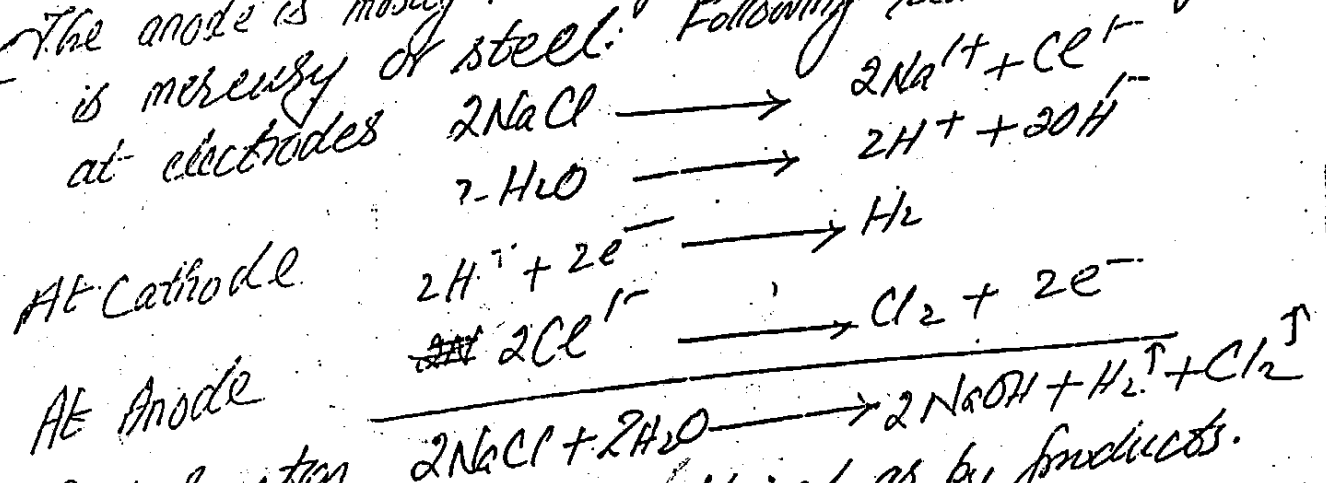 The anode is mostly
is mercury or steel. Following
at electrodes 2NaCl ⟶ 2Na¹⁺ + Cl¹⁻
2H₂O ⟶ 2H⁺ + 2OH¹⁻
At Cathode 2H⁺ + 2e⁻ ⟶ H₂
At Anode 2Cl¹⁻ ⟶ Cl₂ + 2e⁻
2NaCl + 2H₂O ⟶ 2NaOH + H₂↑ + Cl₂↑
as by products.